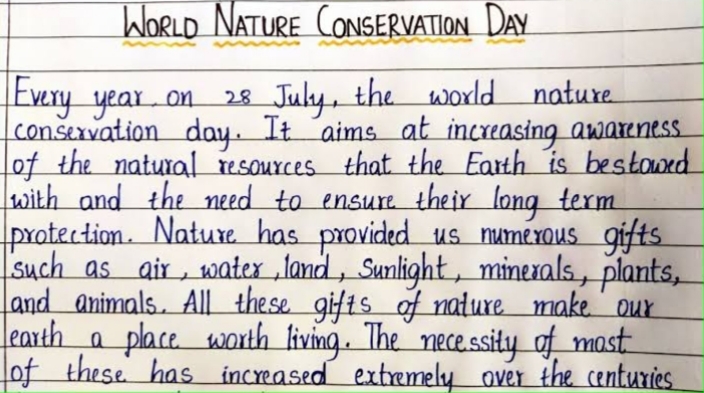 WORLD NATURE CONSERVATION DAY
Every year on 28 July, the world nature
conservation day. It aims at increasing awareness
of the natural resources that the Earth is bestowed
with and the need to ensure their long term
protection. Nature has provided us numerous gifts
such as air, water, land, Sunlight, minerals, plants,
and animals. All these gifts of nature make our
earth a place worth living. The necessity of most
of these has increased extremely over the centuries